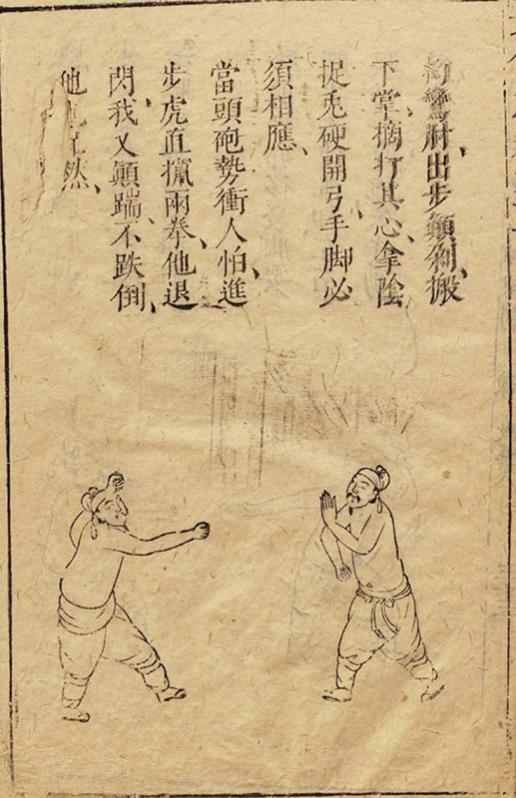 鸞肘、出步顛剁、搬
下掌、摘打其心、拿陰
捉兎硬開弓、手脚必
須相應、
當頭砲勢衝人怕、進
步虎直攛兩拳、他退
閃、我又顛踹、不跌倒、
他然、